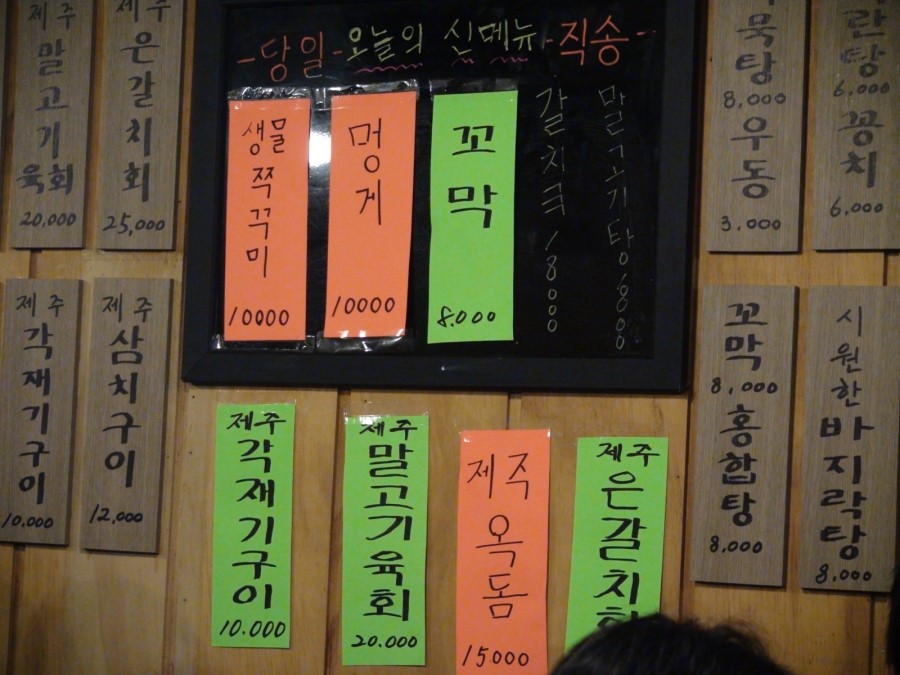 제주 말고기 육회
20,000
제주 은갈치회
25,000
-당일-오늘의 신메뉴-직송-
생물 쭈꾸미
10000
멍게
10000
꼬막
8.000
갈치국 18000
말고기탕
묵탕
8,000
우동
3.000
란탕
6,000
꽁치
6,000
제주 각재기구이
10.000
제주 삼치구이
12,000
꼬막
8,000
홍합탕
8,000
시원한 바지락탕
8,000
제주 각재기구이
10.000
제주 말고기육회
20.000
제주 옥돔
15000
제주 은갈치